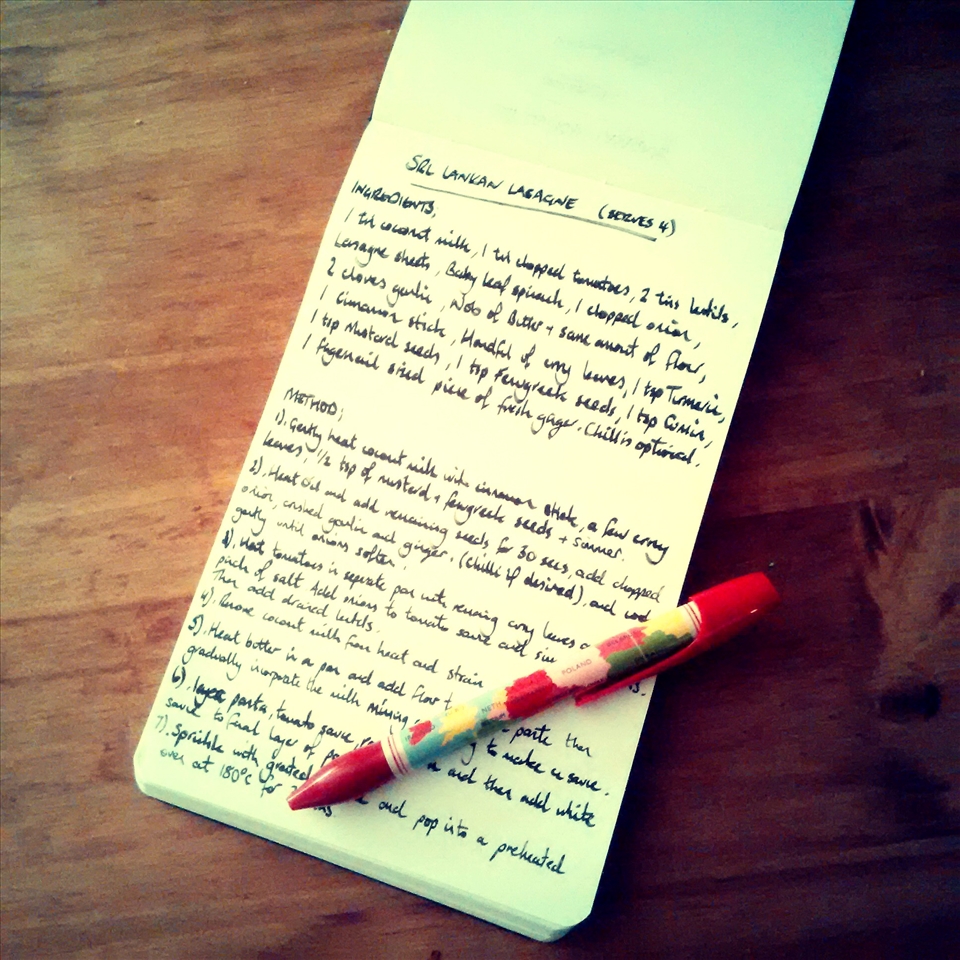 SRI LANKAN LASAGNE (SERVES 4)
INGREDIENTS,
1 tin coconut milk, 1 tin chopped tomatoes, 2 tins lentils,
Lasagne sheets, Baby leaf spinach, 1 chopped onion,
2 cloves garlic, Nob of Butter + same amount of flour,
1 Cinnamon stick, Handful of curry leaves, 1 tsp Turmeric,
1 tsp Mustard seeds, 1 tsp Fenugreek seeds, 1 tsp Cumin,
1 fingernail sized piece of fresh ginger. Chilli is optional.
METHOD;
1). Gently heat coconut milk with cinnamon stick, a few curry
leaves, 1/2 tsp of mustard + fenugreek seeds + simmer.
2). Heat oil and add remaining seeds for 30 secs, add chopped
onion, crushed garlic and ginger. (chilli if desired), and cook
gently until onions soften.
3). Heat tomatoes in seperate pan with remaining curry leaves
pinch of salt. Add onions to tomato sauce and
Then add drained lentils.
4). Remove coconut milk from heat and strain
5). Heat butter in a pan and add flour paste then
gradually incorporate the milk mixing to make a sauce.
6). layer pasta, tomato sauce and then add white
sauce to final layer of
7). Sprinkle with grated and pop into a preheated
oven at 180°c for
POLAND